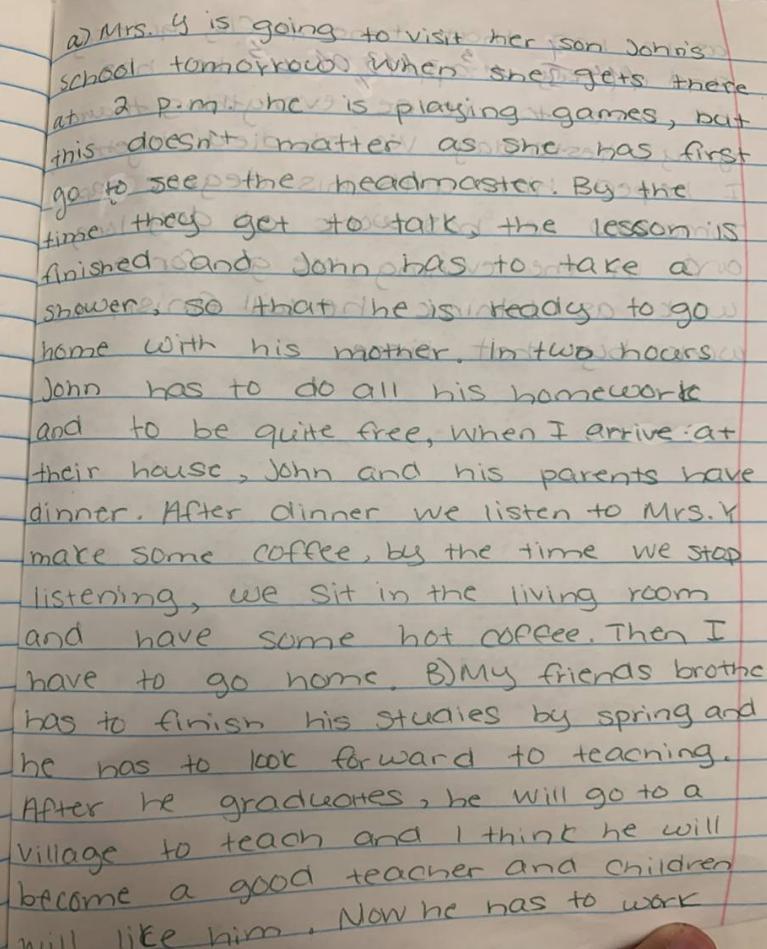 a) Mrs. Y is going to visit her son John's
school tomorrow. When she gets there
at 2 p.m. he is playing games, but
this doesn't matter as she has first
go to see the headmaster. By the
time they get to talk, the lesson is
finished and John has to take a
shower, so that he is ready to go
home with his mother. In two hours
John has to do all his homework
and to be quite free, when I arrive at
their house, John and his parents have
dinner. After dinner we listen to Mrs. Y
make some coffee, by the time we stop
listening, we sit in the living room
and have some hot coffee. Then I
have to go home. B) My friends brothe
has to finish his studies by spring and
he has to look forward to teaching.
After he graduates, he will go to a
village to teach and I think he will
become a good teacher and children
will like him. Now he has to work